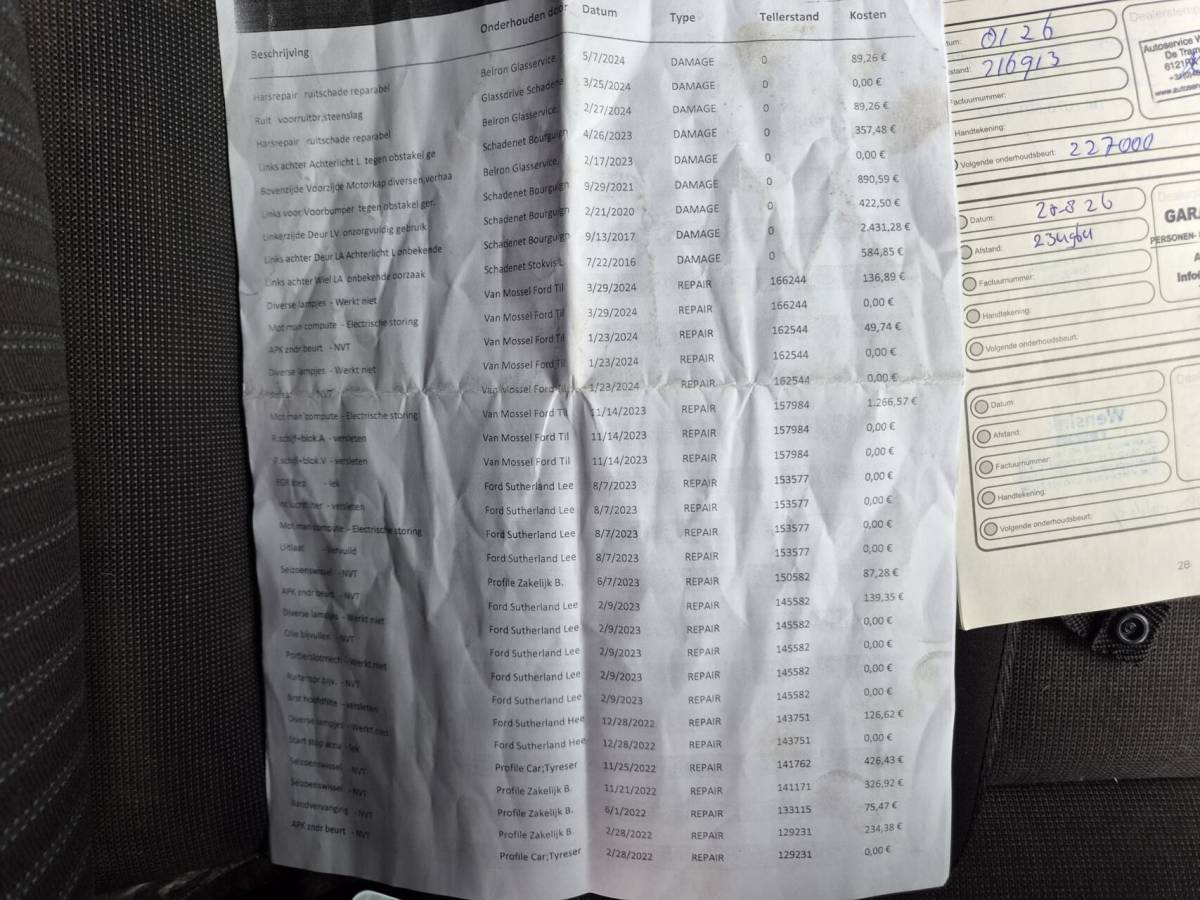 Beschrijving Onderhouden door Datum Type Tellerstand Kosten
Harsrepair ruitschade reparabel Belron Glasservice, 5/7/2024 DAMAGE 0 89,26 €
Ruit voorruitbr,steenslag Glassdrive Schadene 3/25/2024 DAMAGE 0 0,00 €
Harsrepair ruitschade reparabel Belron Glasservice, 2/27/2024 DAMAGE 0 89,26 €
Links achter Achterlicht L tegen obstakel ge Schadenet Bourguign 4/26/2023 DAMAGE 0 357,48 €
Bovenzijde Voorzijde Motorkap diversen,verhaa Belron Glasservice, 2/17/2023 DAMAGE 0 0,00 €
Links voor Voorbumper tegen obstakel ger. Schadenet Bourguign 9/29/2021 DAMAGE 0 890,59 €
Linkerzijde Deur LV onzorgvuldig gebruik Schadenet Bourguign 2/21/2020 DAMAGE 0 422,50 €
Links achter Deur LA Achterlicht L onbekende Schadenet Bourguign 9/13/2017 DAMAGE 0 2.431,28 €
Links achter Wiel LA onbekende oorzaak Schadenet Stokvis L 7/22/2016 DAMAGE 0 584,85 €
Diverse lampjes - Werkt niet Van Mossel Ford Til 3/29/2024 REPAIR 166244 136,89 €
Mot man compute - Electrische storing Van Mossel Ford Til 3/29/2024 REPAIR 166244 0,00 €
APK zndr beurt - NVT Van Mossel Ford Til 1/23/2024 REPAIR 162544 49,74 €
Diverse lampjes - Werkt niet Van Mossel Ford Til 1/23/2024 REPAIR 162544 0,00 €
- NVT Van Mossel Ford Til 1/23/2024 REPAIR 162544 0,00 €
Mot man compute - Electrische storing Van Mossel Ford Til 11/14/2023 REPAIR 157984 1.266,57 €
R.schijf+blok.A - versleten Van Mossel Ford Til 11/14/2023 REPAIR 157984 0,00 €
R.schijf+blok.V - versleten Van Mossel Ford Til 11/14/2023 REPAIR 157984 0,00 €
EGR klep - lek Ford Sutherland Lee 8/7/2023 REPAIR 153577 0,00 €
- versleten Ford Sutherland Lee 8/7/2023 REPAIR 153577 0,00 €
Mot man compute - Electrische storing Ford Sutherland Lee 8/7/2023 REPAIR 153577 0,00 €
Uitlaat - Vervuild Ford Sutherland Lee 8/7/2023 REPAIR 153577 0,00 €
Seizoenswissel - NVT Profile Zakelijk B. 6/7/2023 REPAIR 150582 87,28 €
APK zndr beurt - NVT Ford Sutherland Lee 2/9/2023 REPAIR 145582 139,35 €
Diverse lampjes - Werkt niet Ford Sutherland Lee 2/9/2023 REPAIR 145582 0,00 €
Olie bijvullen - NVT Ford Sutherland Lee 2/9/2023 REPAIR 145582 0,00 €
Portierslotmech - Werkt niet Ford Sutherland Lee 2/9/2023 REPAIR 145582 0,00 €
Ruitenspr.bijv. - NVT Ford Sutherland Lee 2/9/2023 REPAIR 145582 0,00 €
- versleten Ford Sutherland Hee 12/28/2022 REPAIR 143751 126,62 €
Diverse lampjes - Werkt niet Ford Sutherland Hee 12/28/2022 REPAIR 143751 0,00 €
Start stop accu - lek Profile Car;Tyreser 11/25/2022 REPAIR 141762 426,43 €
Seizoenswissel - NVT Profile Zakelijk B. 11/21/2022 REPAIR 141171 326,92 €
Seizoenswissel - NVT Profile Zakelijk B. 6/1/2022 REPAIR 133115 75,47 €
Bandvervanging - NVT Profile Zakelijk B. 2/28/2022 REPAIR 129231 234,38 €
APK zndr beurt - NVT Profile Car;Tyreser 2/28/2022 REPAIR 129231 0,00 €
Dealerstemp
01 26
216913
Autoservice W
De Tram
www.autoser
Factuurnummer:
Handtekening:
Volgende onderhoudsbeurt: 227000
Datum: 28-8 26
Afstand: 234964
GARA
PERSONEN-
Info
Factuurnummer:
Handtekening:
Volgende onderhoudsbeurt:
Datum:
Afstand:
Factuurnummer:
Handtekening:
Volgende onderhoudsbeurt:
28